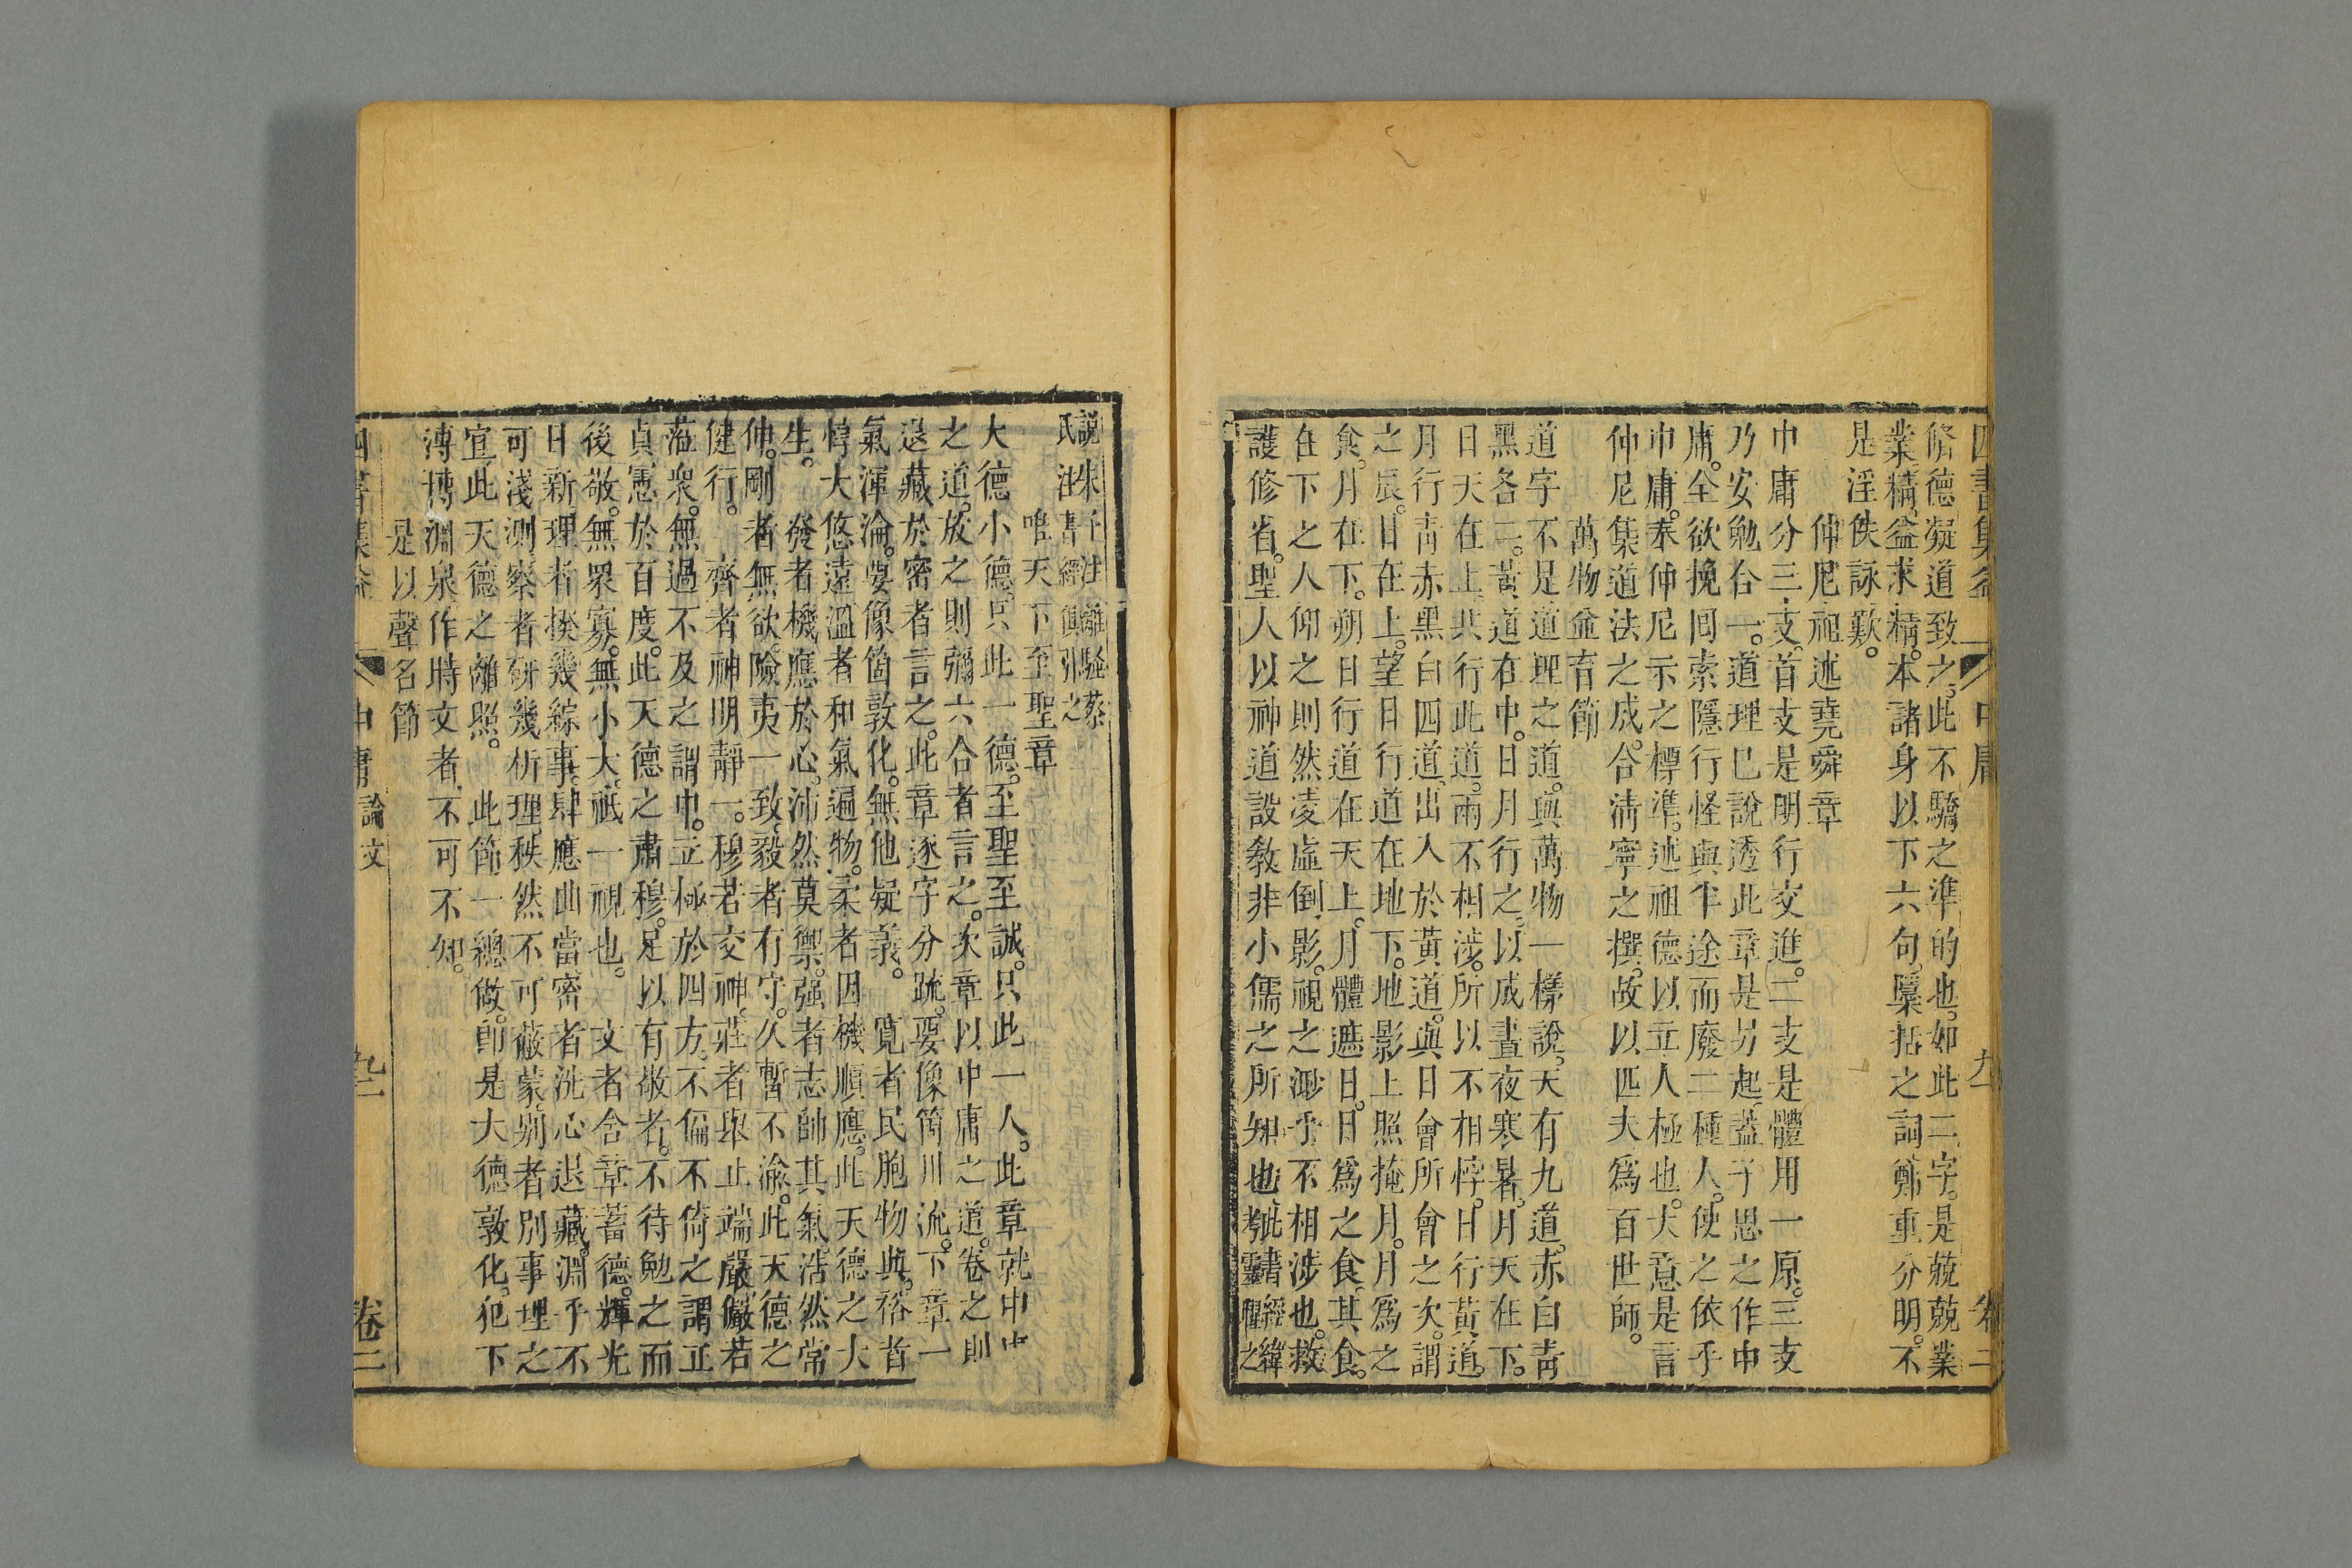 四書集益 中庸 卷二
脩德凝道致之此不驕之準的也如此二字是兢兢業
業精益求精本諸身以下六句檃括之詞鄭重分明不
是淫佚詠歎
仲尼祖述堯舜章
中庸分三支首支是明行交進二支是體用一原三支
乃安勉合一道理已說透此章是另起蓋子思之作中
庸全欲挽回索隱行怪與半途而廢二種人使之依乎
中庸奉仲尼示之標準述祖德以立人極也大意是言
仲尼集道法之成合清寧之撰故以匹夫為百世師
萬物並育節
道字不是道理之道與萬物一樣說天有九道赤白青
黑各二黃道在中日月行之以成晝夜寒暑月天在下
日天在上共行此道兩不相涉所以不相悖日行黃道
月行青赤黑白四道出入於黃道與日會所會之次謂
之辰日在上望日行道在地下地影上照掩月月為之
食月在下朔日行道在天上月體遮日日為之食其食
在下之人仰之則然凌虛倒影視之渺乎不相涉也救
護修省聖人以神道設教非小儒之所知也
說朱子注離騷蔡
氏注書經俱引之
唯天下至聖章
大德小德只此一德至聖至誠只此一人此章就中
之道放之則彌六合者言之次章以中庸之道卷之則
退藏於密者言之此章逐字分疏要像箇川流下章一
氣渾淪要像箇敦化無他疑義 寬者民胞物與裕者
惇大悠遠溫者和氣遍物柔者因機順應此天德之大
生 發者機應於心沛然莫禦强者志帥其氣浩然常
伸剛者無欲險夷一致毅者有守久暫不渝此天德之
健行 齊者神明靜一穆若交神莊者舉止端嚴儼若
蒞衆無過不及之謂中立極於四方不偏不倚之謂正
貞憲於百度此天德之肅穆足以有敬者不待勉之而
後敬無衆寡無小大祇一視也 文者含章蓄德輝光
日新理者揆幾綜事肆應曲當密者洗心退藏淵乎不
可淺測察者研幾析理秩然不可蔽蒙別者別事理之
宜此天德之離照 此節一總做卽是大德敦化犯下
溥博淵泉作時文者不可不知
是以聲名節
四書集益 中庸 論文 卷二